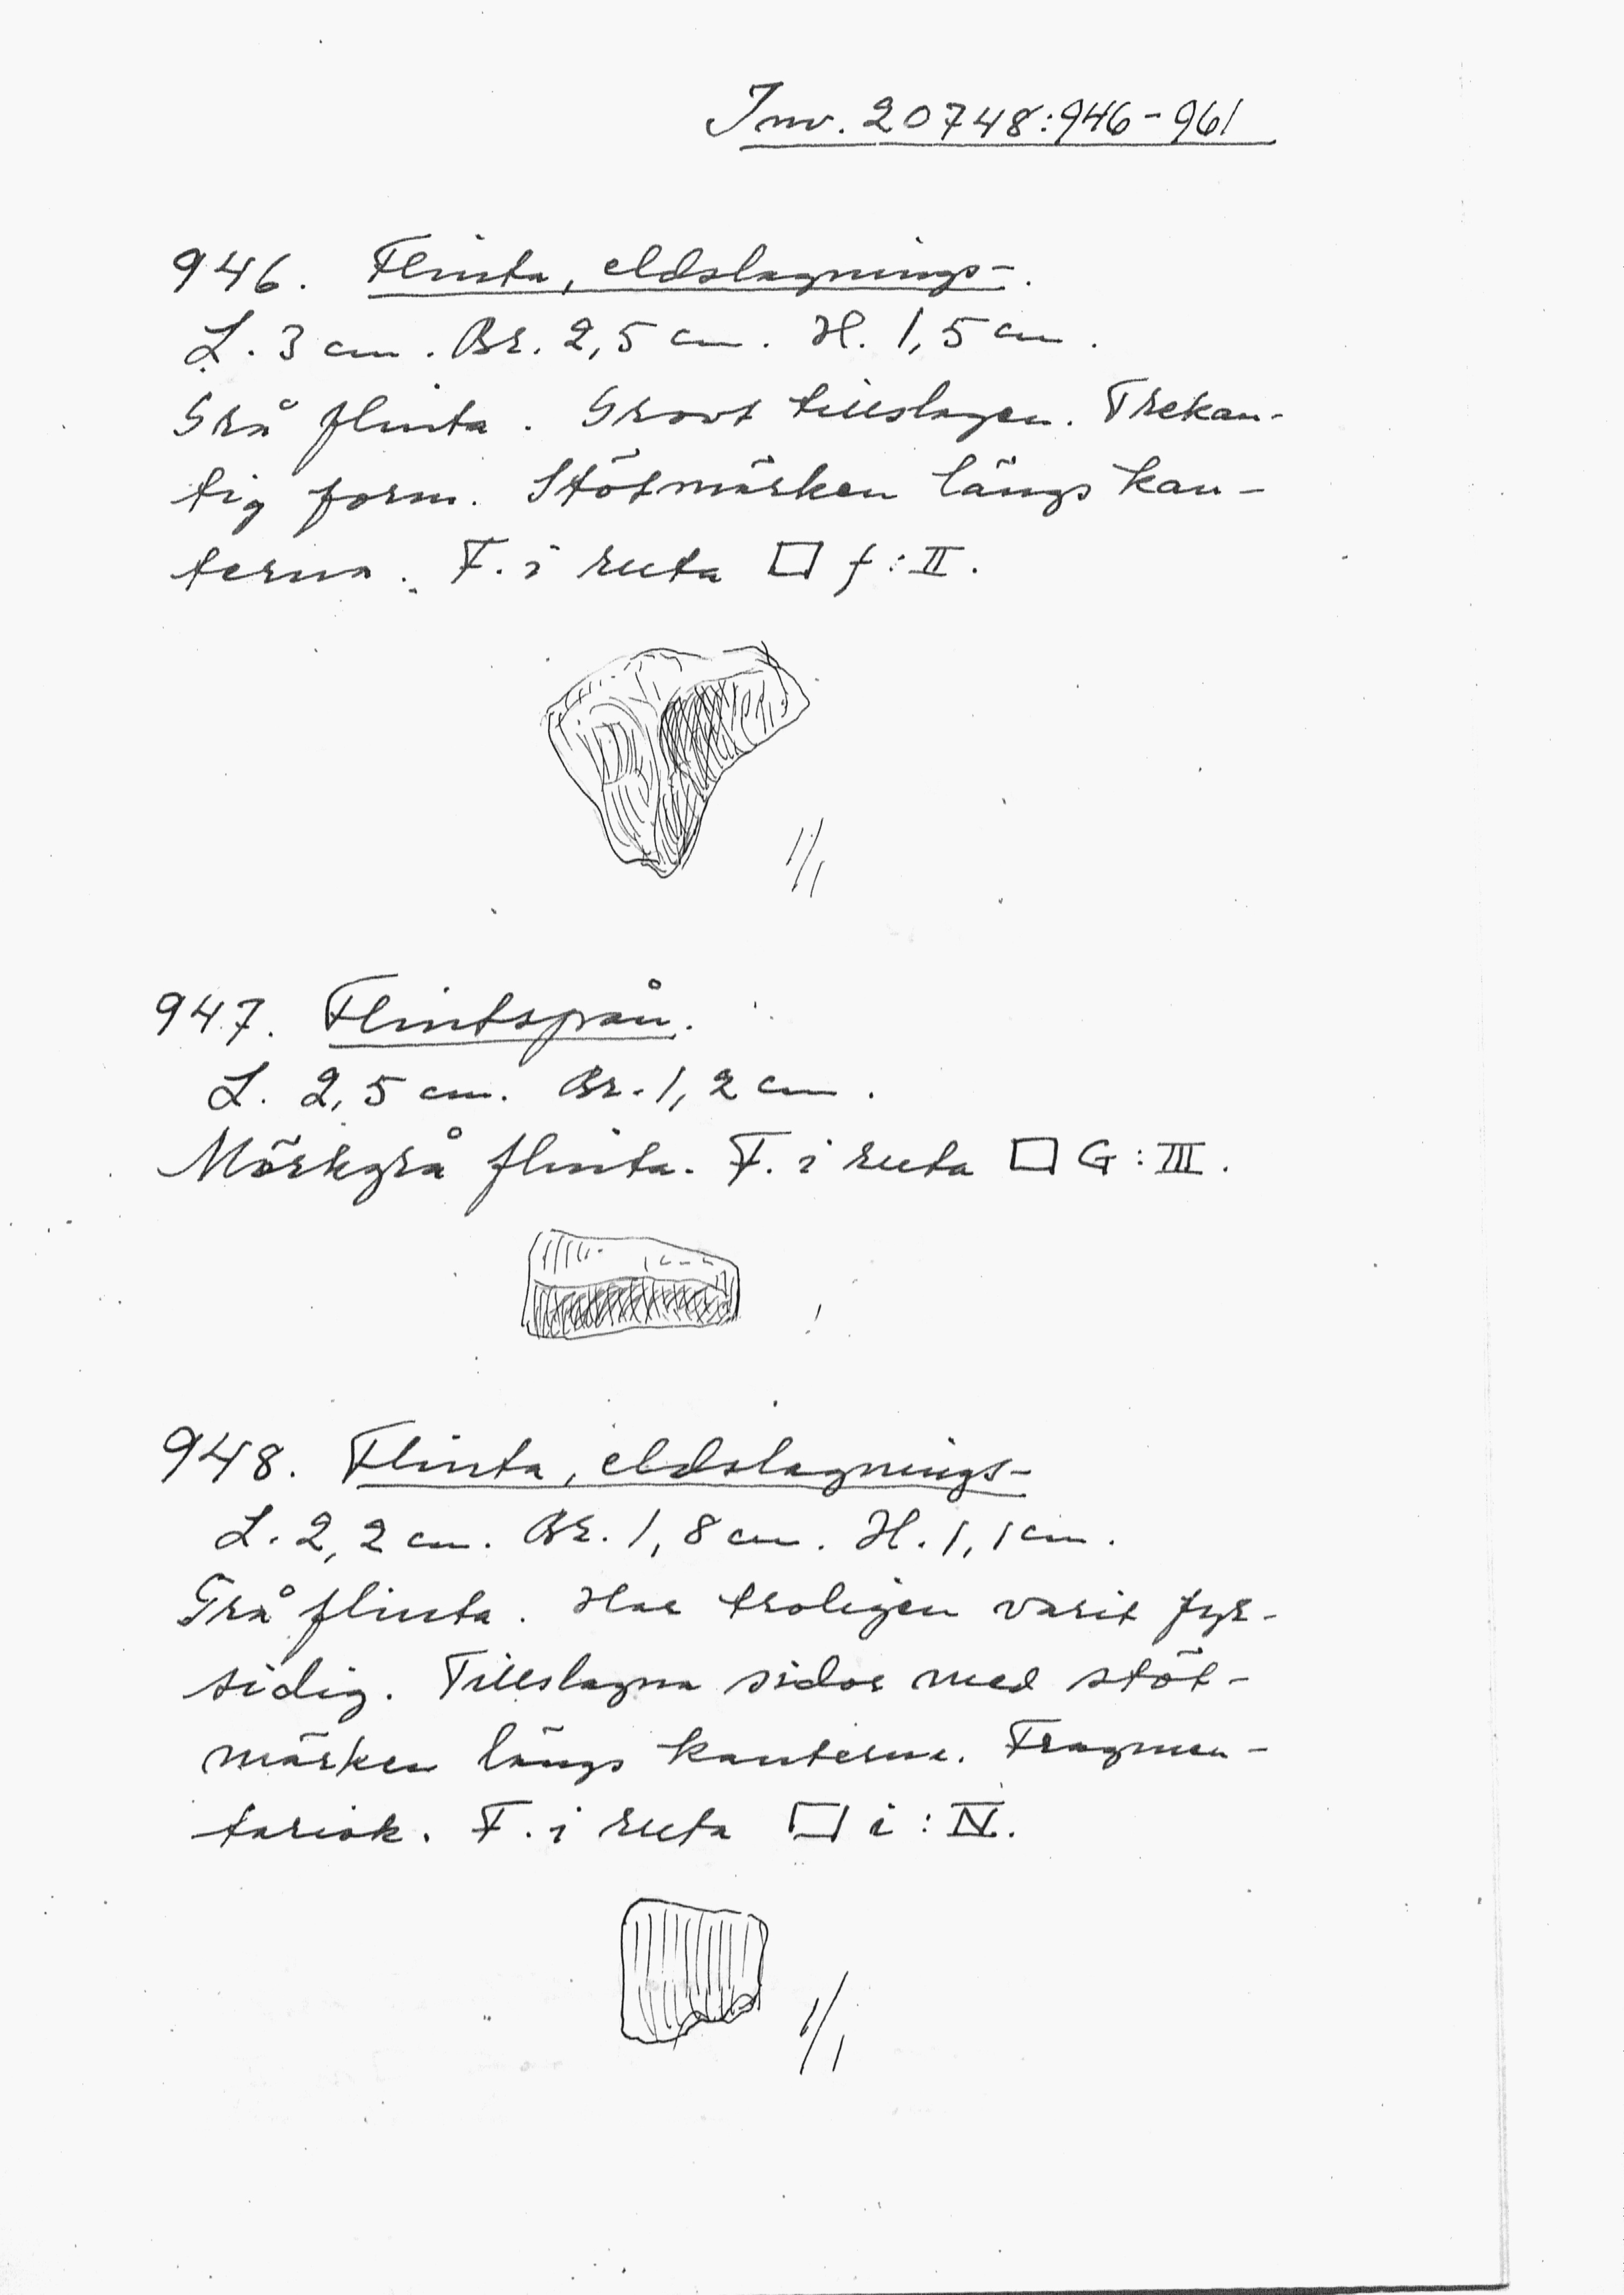 Inv. 20748:946-961
946. Flinta, eldslagnings-.
L. 3 cm. Br. 2,5 cm. H. 1,5 cm.
Grå flinta. Grovt tillslagen. Trekan-
tig form. Stötmärken längs kan-
terna. F. i ruta □ f:II.
1/1
947. Flintspån.
L. 2,5 cm. Br. 1,2 cm.
Mörkgrå flinta. F. i ruta □ G:III.
948. Flinta, eldslagnings-
L. 2,2 cm. Br. 1,8 cm. H. 1,1 cm.
Grå flinta. Har troligen varit fyr-
sidig. Tillslagna sidor med stöt-
märken längs kanterna. Fragmen-
tarisk. F. i ruta □ i:IV.
1/1